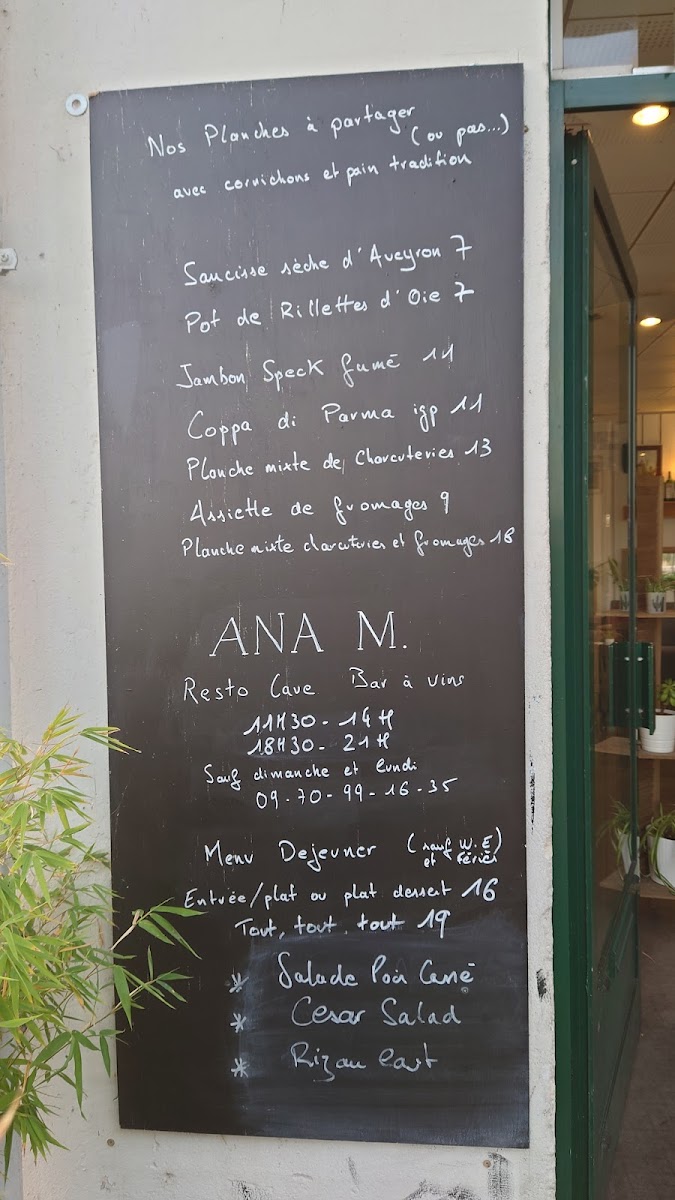 Nos Planches à partager (ou pas...)
avec cornichons et pain tradition
Saucisse sèche d'Aveyron 7
Pot de Rillettes d'Oie 7
Jambon Speck fumé 11
Coppa di Parma igp 11
Planche mixte de Charcuteries 13
Assiette de fromages 9
Planche mixte charcuteries et fromages 18
ANA M.
Resto Cave Bar à vins
11H30 - 14H
18H30 - 21H
Sauf dimanche et lundi
09-70-99-16-35
Menu Dejeuner (sauf W.E et fériés)
Entrée/plat ou plat dessert 16
Tout, tout, tout 19
* Salade
* Cesar Salad
* Riz au lait